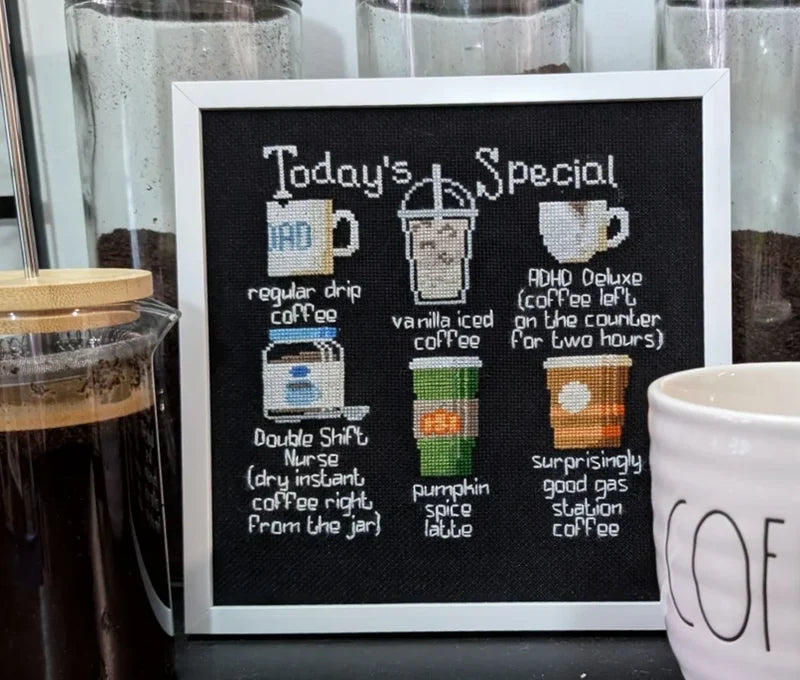 Today's Special
DAD
regular drip
coffee
vanilla iced
coffee
ADHD Deluxe
(coffee left
on the counter
for two hours)
Double Shift
Nurse
(dry instant
coffee right
from the jar)
pumpkin
spice
latte
surprisingly
good gas
station
coffee
COF